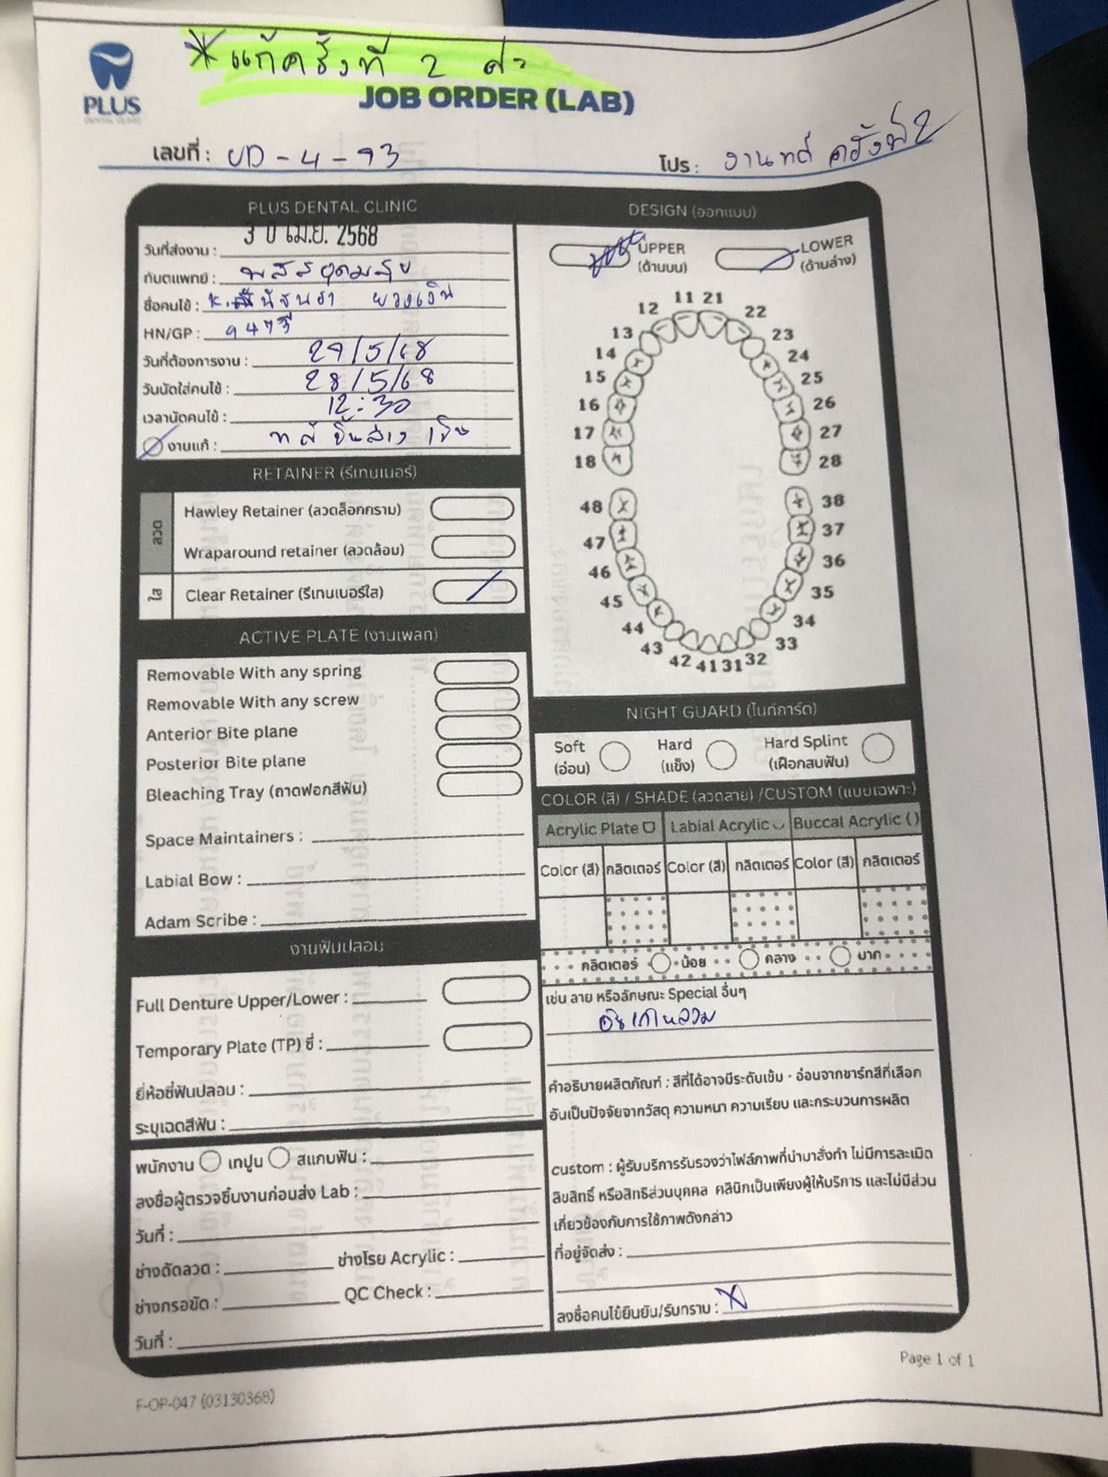 *แก้ครั้งที่ 2 ค่ะ
PLUS
DENTAL CLINIC
JOB ORDER (LAB)
เลขที่ : UD-4-93
โปร : งานทดี ครั้งที่ 2
PLUS DENTAL CLINIC
วันที่ส่งงาน : 30 เม.ย. 2568
ทันตแพทย์ :
ชื่อคนไข้ :
HN/GP : 9473
วันที่ต้องการงาน : 27/5/68
วันนัดใส่คนไข้ : 28/5/68
เวลานัดคนไข้ : 12:30
งานแก้ :
RETAINER (รีเทนเนอร์)
ลวด
Hawley Retainer (ลวดล็อกกราม)
Wraparound retainer (ลวดล้อม)
ใส
Clear Retainer (รีเทนเนอร์ใส)
ACTIVE PLATE (งานเพลท)
Removable With any spring
Removable With any screw
Anterior Bite plane
Posterior Bite plane
Bleaching Tray (ถาดฟอกสีฟัน)
Space Maintainers :
Labial Bow :
Adam Scribe :
งานฟันปลอม
Full Denture Upper/Lower :
Temporary Plate (TP) ซี่ :
ยี่ห้อซี่ฟันปลอม :
ระบุเฉดสีฟัน :
พนักงาน เทปูน สแกนฟัน :
ลงชื่อผู้ตรวจชิ้นงานก่อนส่ง Lab :
วันที่ :
ช่างดัดลวด : ช่างโรย Acrylic :
ช่างกรอขัด : QC Check :
วันที่ :
DESIGN (ออกแบบ)
UPPER
(ด้านบน)
LOWER
(ด้านล่าง)
11 21
12 22
13 23
14 24
15 25
16 26
17 27
18 28
48 38
47 37
46 36
45 35
44 34
43 33
42 41 31 32
NIGHT GUARD (ไนท์การ์ด)
Soft
(อ่อน)
Hard
(แข็ง)
Hard Splint
(เฝือกสบฟัน)
COLOR (สี) / SHADE (ลวดลาย) /CUSTOM (แบบเฉพาะ)
Acrylic Plate Labial Acrylic Buccal Acrylic ( )
Color (สี) กลิตเตอร์ Color (สี) กลิตเตอร์ Color (สี) กลิตเตอร์
กลิตเตอร์ น้อย กลาง มาก
เช่น ลาย หรือลักษณะ Special อื่นๆ
คำอธิบายผลิตภัณฑ์ : สีที่ได้อาจมีระดับเข้ม - อ่อนจากชาร์ทสีที่เลือก
อันเป็นปัจจัยจากวัสดุ ความหนา ความเรียบ และกระบวนการผลิต
custom : ผู้รับบริการรับรองว่าไฟล์ภาพที่นำมาสั่งทำ ไม่มีการละเมิด
ลิขสิทธิ์ หรือสิทธิส่วนบุคคล คลินิกเป็นเพียงผู้ให้บริการ และไม่มีส่วน
เกี่ยวข้องกับการใช้ภาพดังกล่าว
ที่อยู่จัดส่ง :
ลงชื่อคนไข้ยืนยัน/รับทราบ : X
Page 1 of 1
F-OP-047 (03130368)